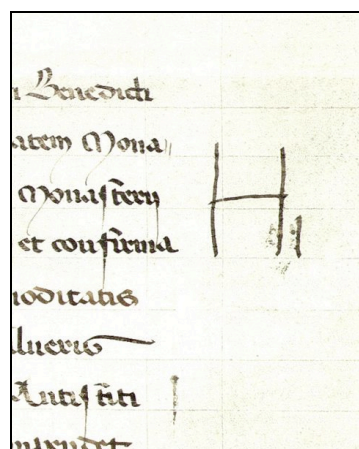 i Benedicti
atem Mona
H
Monaſterij
et confirma
1
moditatis
lueris
Antiſtiti